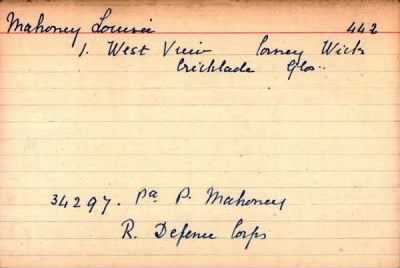 Mahoney Louisa 442
1. West View Corney Wick
Cricklade Glos..
34297. Pa P. Mahoney
R. Defence Corps